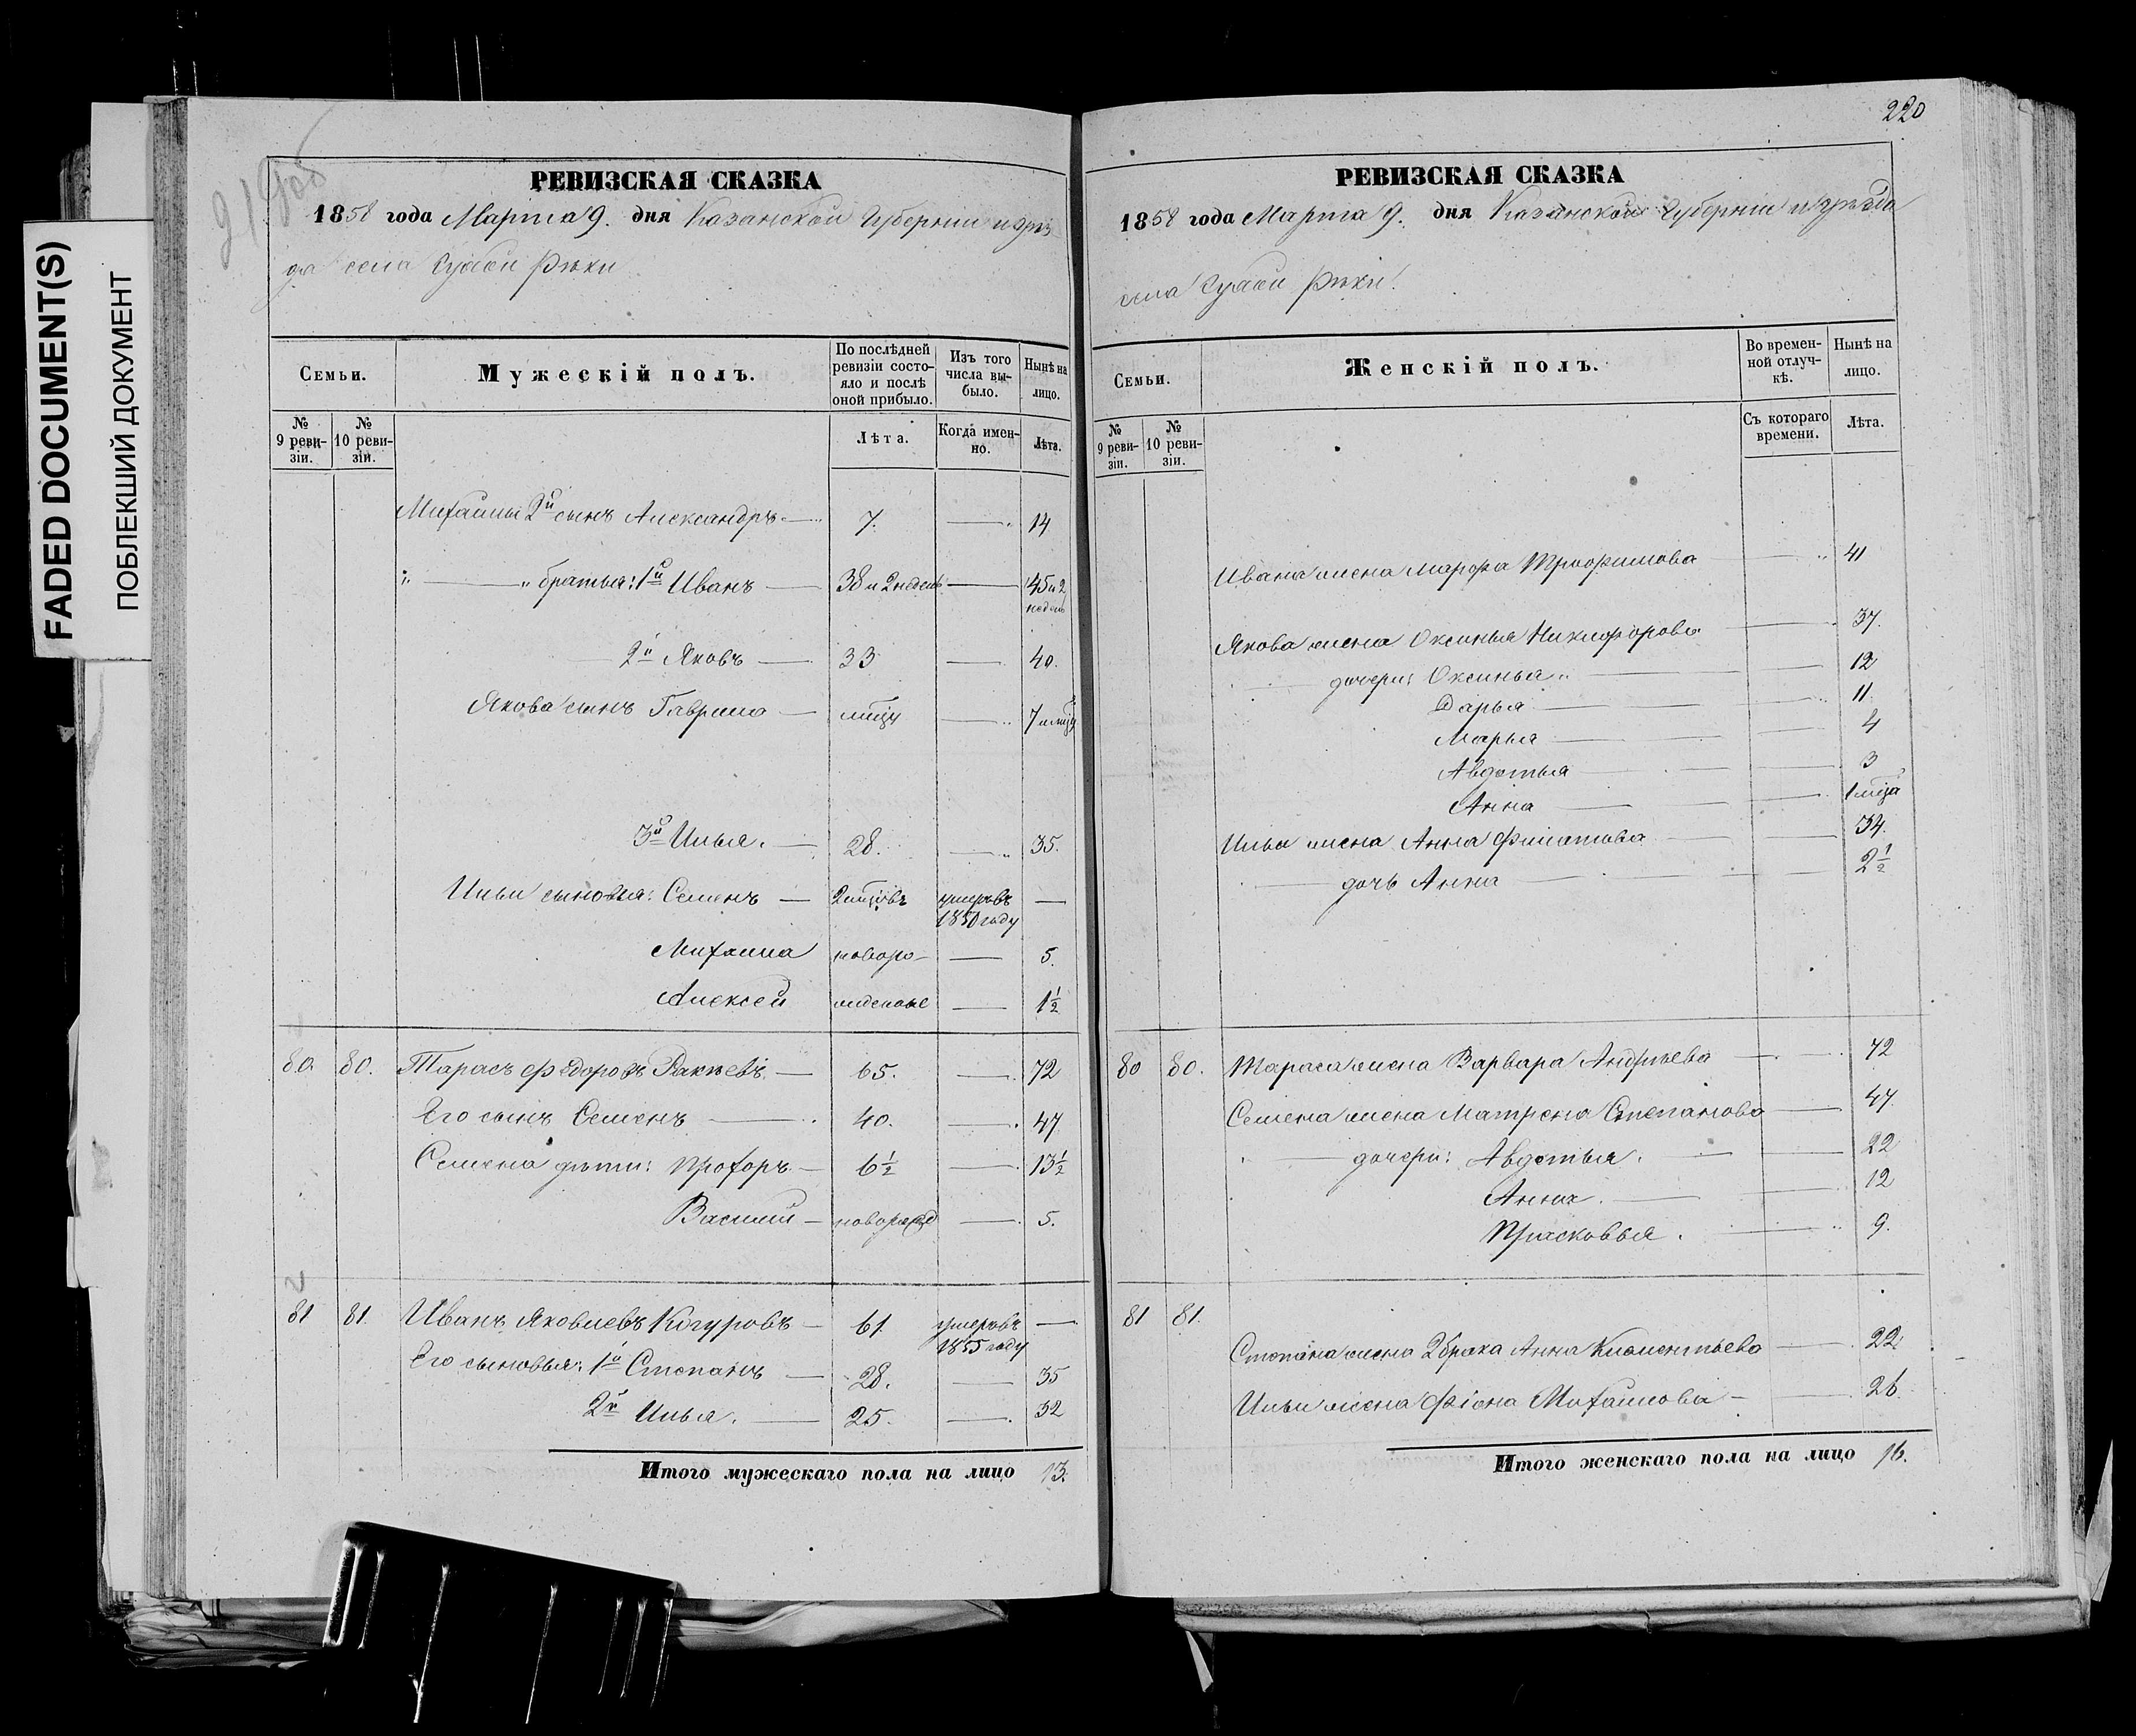 FADED DOCUMENT(S)
ПОБЛЕКШИЙ ДОКУМЕНТ
РЕВИЗСКАЯ СКАЗКА
1858 года Марта 9. дня Казанской Губернии и уѣз-
да села Рѣки
Семьи.
Мужескій полъ.
По послѣдней ревизіи состо-яло и послѣ оной прибыло.
Изъ того числа вы-было.
Нынѣ на лицо.
№ 9 реви-зіи.
№ 10 реви-зіи.
Лѣта.
Когда имен-но.
Лѣта.
Михайлы 2й сынъ Александръ — 7. — 14
„ — „ братья: 1й Иванъ — 38 и 2 недель — 45 и 2 недель
2й Яковъ — 33 — 40.
Якова сынъ Гаврило — мѣсяц — 7 и мѣсяц
3й Илья. — 28. — 35.
Ильи сыновья: Семенъ — 2 мѣсяцовъ умеръ въ 1850 году —
Михаила новоро- — 5.
Алексей жденные — 1½
80. 80. Тарасъ Федоровъ Ракѣевъ. — 65. — 72
Его сынъ Семенъ — 40. — 47
Семена дѣти: Прохоръ. — 6½ — 13½
Василий — новорожд — 5.
81 81. Иванъ Яковлевъ Когуровъ — 61 умеръ въ 1855 году —
Его сыновья: 1й Степанъ — 28. — 35
2й Илья. — 25. — 32
Итого мужескаго пола на лицо 13.
220
РЕВИЗСКАЯ СКАЗКА
1858 года Марта 9. дня Казанской Губернии и уѣзда
села Рѣки.
Семьи.
Женскій полъ.
Во времен-ной отлуч-кѣ.
Нынѣ на лицо.
№ 9 реви-зіи.
№ 10 реви-зіи.
Съ котораго времени.
Лѣта.
Ивана жена Марфа Трофимова — 41
Якова жена Оксинья Никифорова — 37.
— дочери: Оксинья — 12
Дарья — 11.
Марья — 4
Авдотья — 3
Анна — 1 мѣсяца
Ильи жена Анна Филатова — 34.
— дочь Анна — 2½
80 80. Тараса жена Варвара Андрѣева — 72
Семена жена Матрена Степанова — 47.
— дочери: Авдотья. — 22
Анна. — 12
Прасковья. — 9.
81 81.
Степана жена 2 брака Анна Климентьева — 22.
Ильи жена Фіона Михайлова — 26.
Итого женскаго пола на лицо 16.